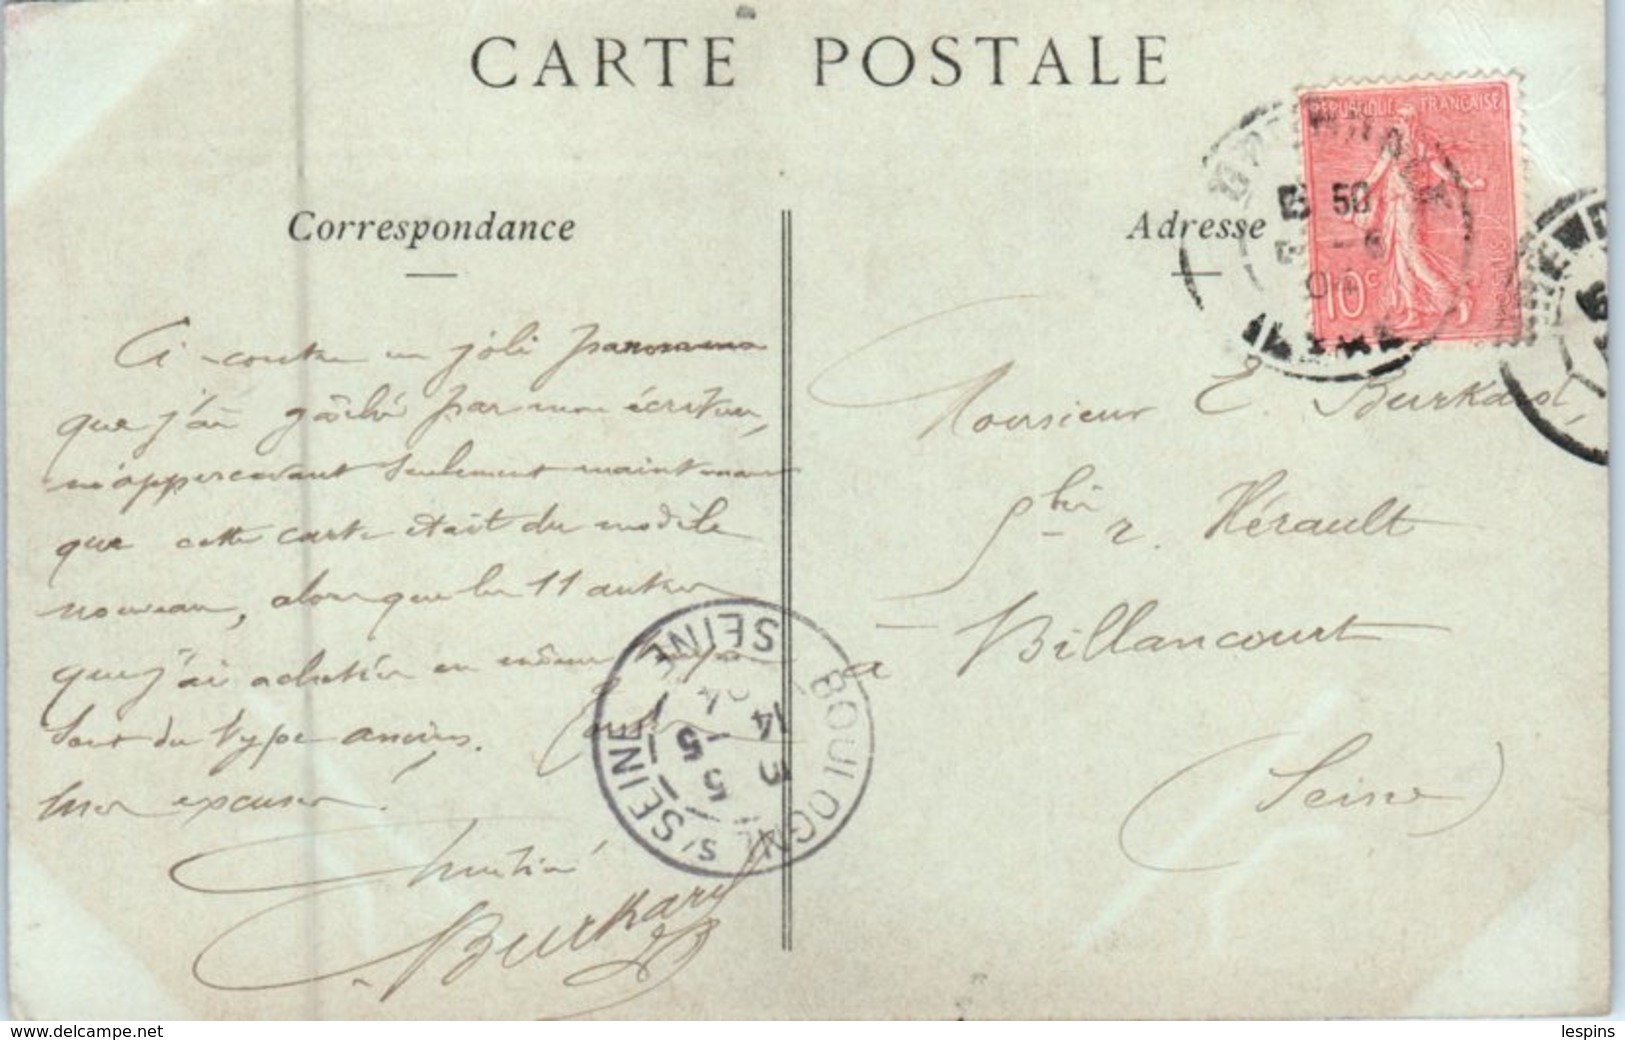 CARTE POSTALE
Correspondance
Adresse
REPUBLIQUE FRANÇAISE
10c
50
04
Ci-contre un joli panorama
que j'ai gâché par mon écriture,
m'appercevant seulement maintenant
que cette carte était du modèle
nouveau, alors que les 11 autres
que j'ai achetées en même temps
sont du type ancien.
excuser!
Burkard
Monsieur E. Burkard,
r. Hérault
à Billancourt
(Seine)
BOULOGNE S/ SEINE
SEINE
14
15 - 5
04
www.delcampe.net
lespins